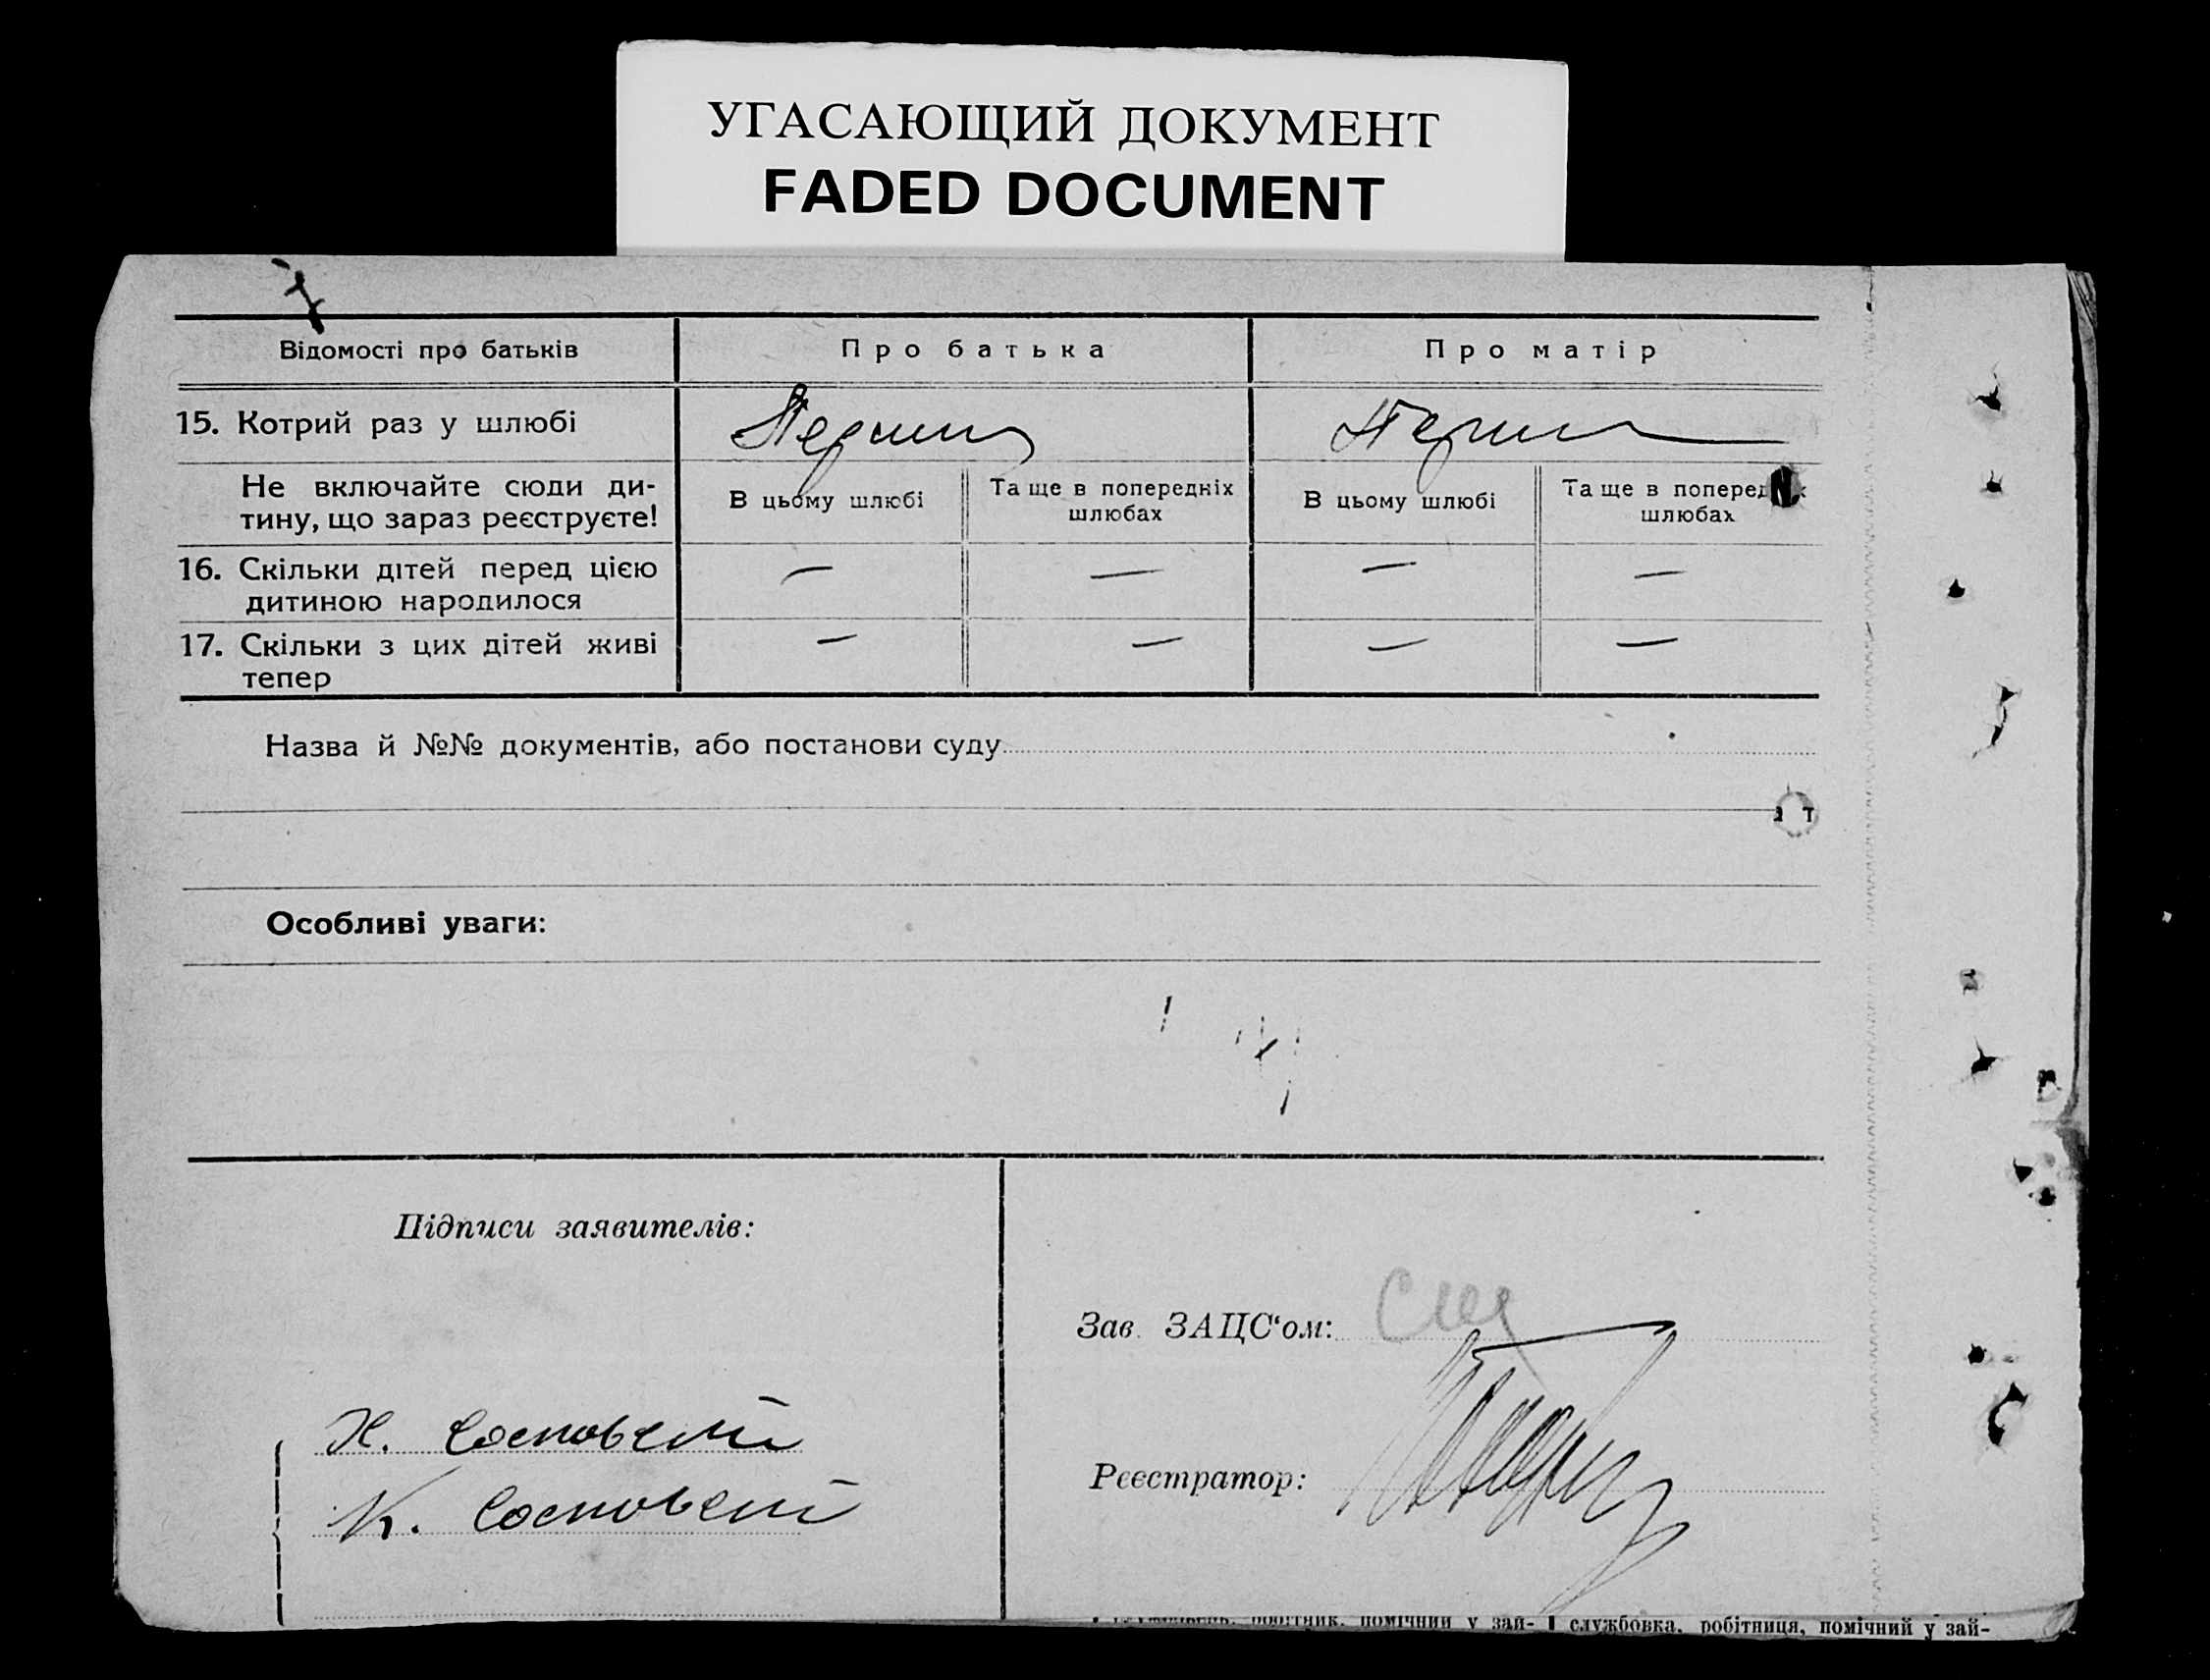 УГАСАЮЩИЙ ДОКУМЕНТ
FADED DOCUMENT
Відомості про батьків
Про батька
Про матір
15. Котрий раз у шлюбі
Не включайте сюди ди-
тину, що зараз реєструєте!
В цьому шлюбі
Та ще в попередніх
шлюбах
В цьому шлюбі
Та ще в
шлюбах
16. Скільки дітей перед цією
дитиною народилося
— — — —
17. Скільки з цих дітей живі
тепер
— — — —
Назва й №№ документів, або постанови суду
Особливі уваги:
Підписи заявителів:
Зав. ЗАЦС‘ом:
Реєстратор:
К.
службовка, робітниця, помічний у зай-